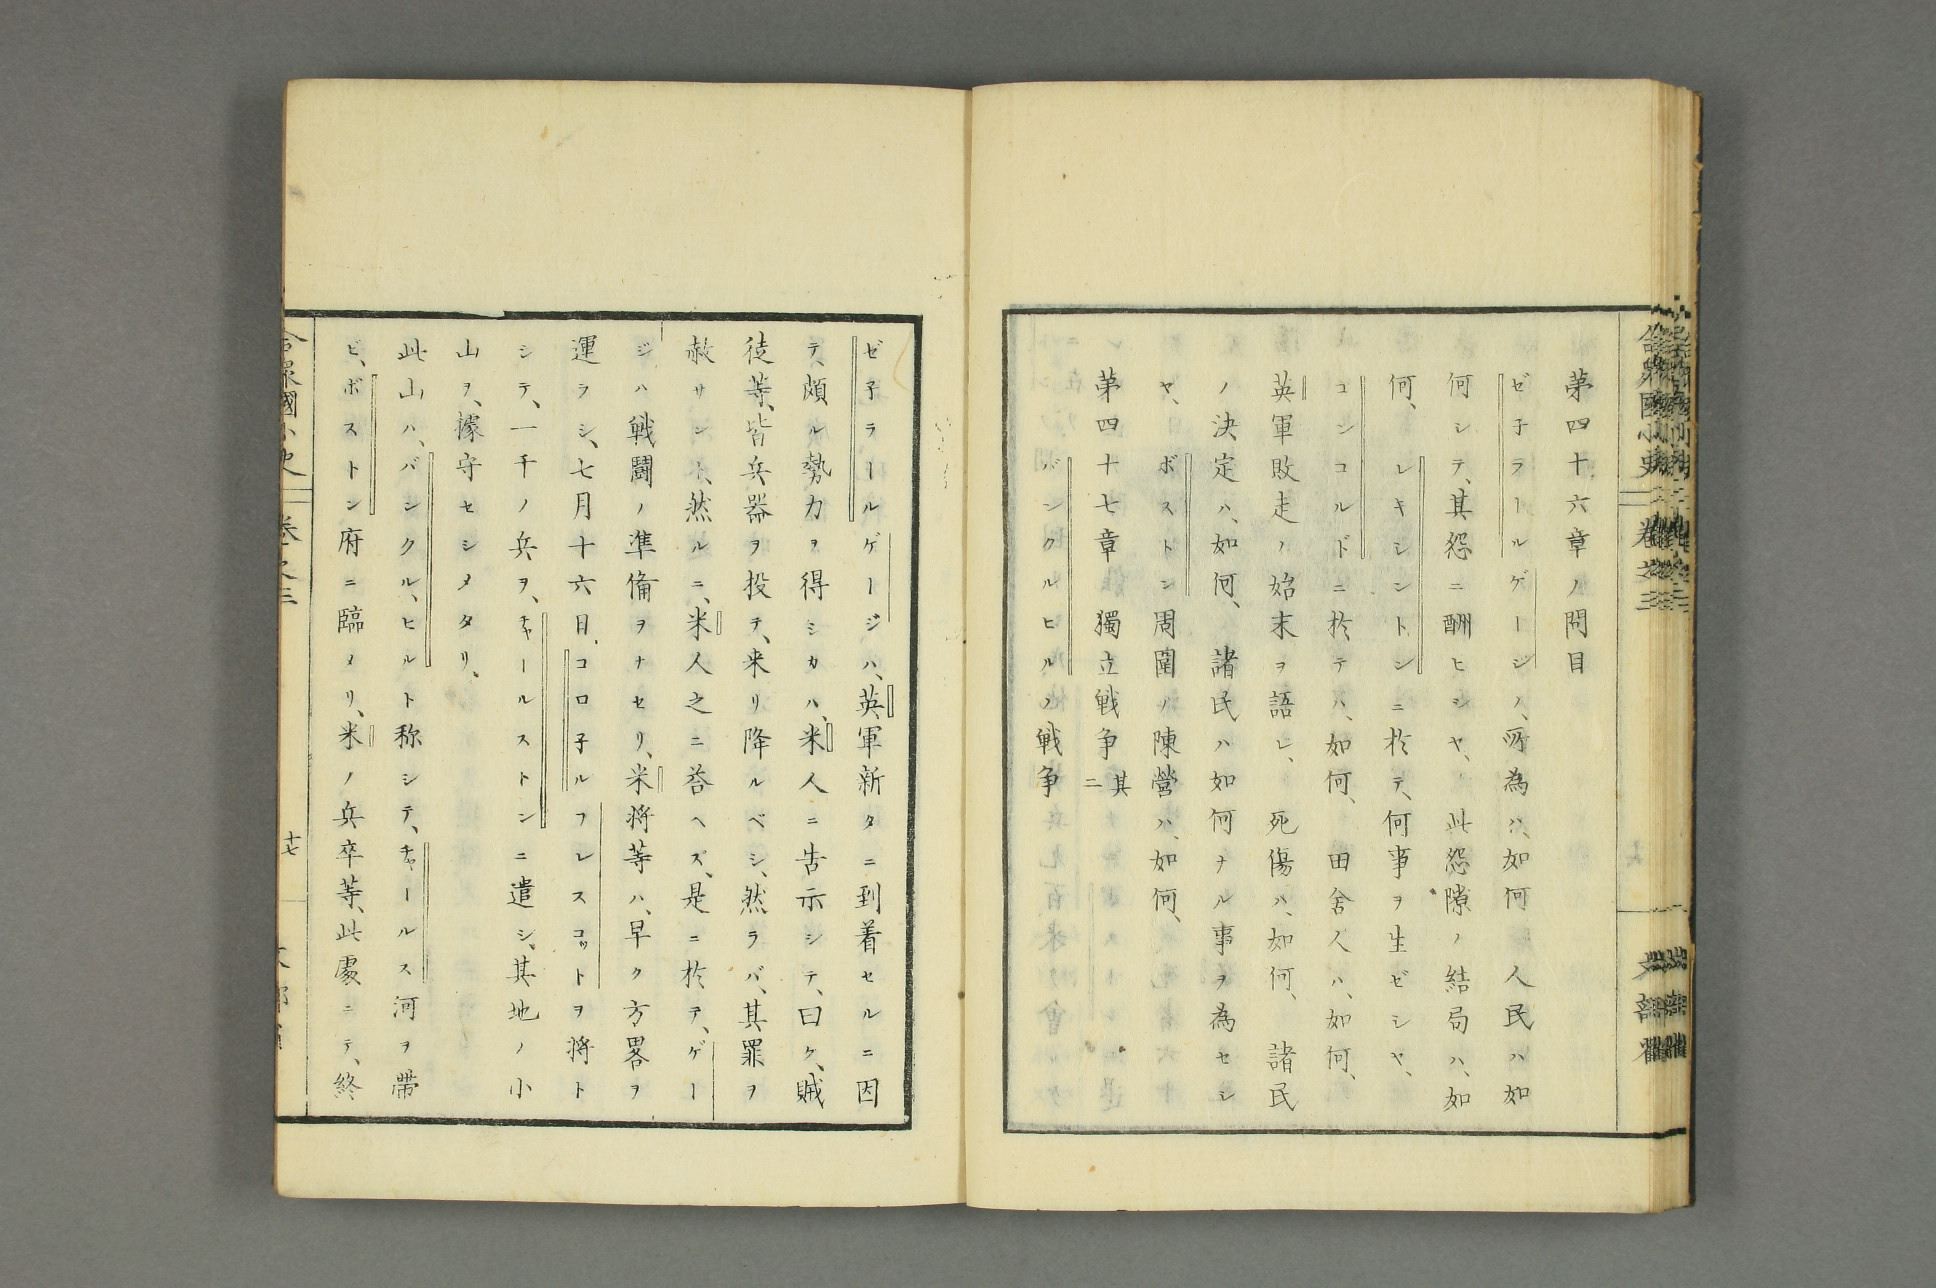 第四十六章ノ問目
ゼ子ラールゲージノ、所為ハ、如何　人民ハ如
何シテ、其怨ニ酬ヒシヤ、　此怨隙ノ結局ハ、如
何、レキシントンニ於テ、何事ヲ生ゼシヤ、
コンコルドニ於テハ、如何、　田舍人ハ、如何、
英軍敗走ノ始末ヲ語レ、　死傷ハ、如何、　諸民
ノ決定ハ、如何、　諸民ハ如何ナル事ヲ為セシ
ヤ、　ボストン周圍ノ陳營ハ、如何、
第四十七章　獨立戦争其二
バンクルヒルノ戦争
ゼ子ラールゲージハ、英軍新タニ到着セルニ因
テ、頗ル勢力ヲ得シカハ、米人ニ告示シテ、曰ク、賊
徒等、皆兵器ヲ投テ、来リ降ルベシ、然ラバ、其罪ヲ
赦サント、然ルニ、米人之ニ答ヘズ、是ニ於テ、ゲー
ジハ戦鬪ノ準備ヲナセリ、米将等ハ、早ク方畧ヲ
運ラシ、七月十六日、コロ子ルフレスコットヲ将ト
シテ、一千ノ兵ヲ、チャールストンニ遣シ、其地ノ小
山ヲ、據守セシメタリ、
此山ハ、バンクル、ヒルト称シテ、チャールス河ヲ帯
ビ、ボストン府ニ臨メリ、米ノ兵卒等、此處ニテ、終
合衆國小史　卷之二　十七　文部省